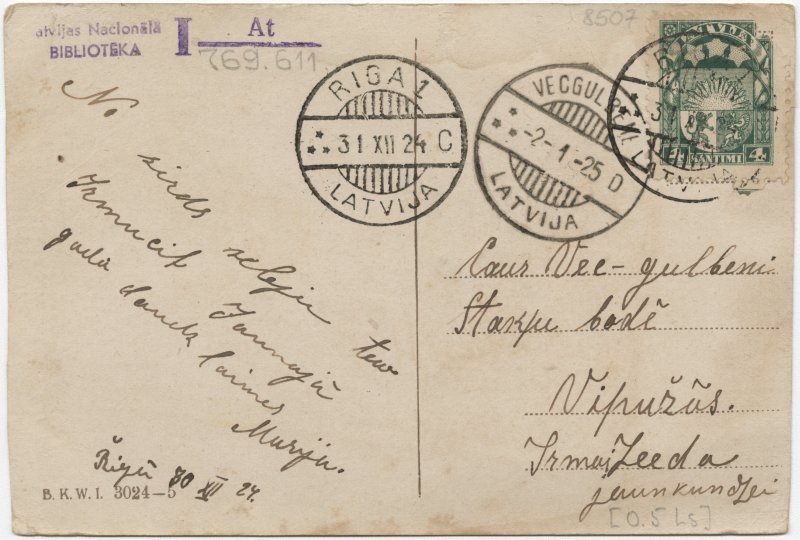 Latvijas Nacionālā
BIBLIOTEKA
I At
769.611
8507
LATVIJA
SANTIMI 4
RIGA 1
31 XII 24 C
LATVIJA
VECGULBENE
-2-1-25 D
LATVIJA
No
sirds velēju tew
Irmucit Jaunajā
gadā daudz laimes
Marija.
Rīgā 30 XII 24.
B. K. W. I. 3024-5
Caur Vec-gulbeni
Stakļu bodē
Vipužūs.
Irmai Zeeda
jaunkundzei
[0.5 Ls]